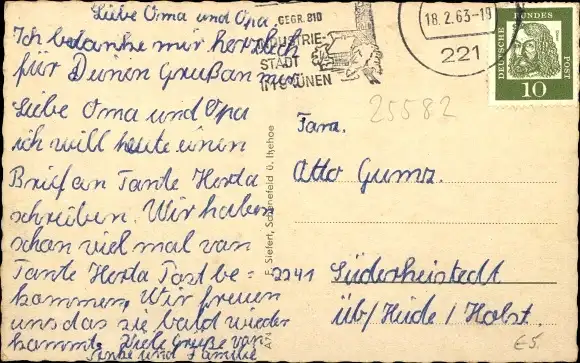 Liebe Oma und Opa
Ich bedanke mir herzlich
für Deinen Gruß an mir
Liebe Oma und Opa
ich will heute einen
Brief an Tante Herta
schreiben. Wir haben
schon viel mal von
Tante Herta Post be =
kommen, Wir freuen
uns das sie bald wieder
kommt. Viele Grüße von
und Familie
GEGR. 810
INDUSTRIE-
STADT
IN DÜNEN
18.2.63-19
221
DEUTSCHE BUNDES POST
10
25582
Fam.
Otto Gumz.
2241 Süderheistedt
üb/Heide / Holst.
Siefert, Schenefeld ü. Itzehoe
€5